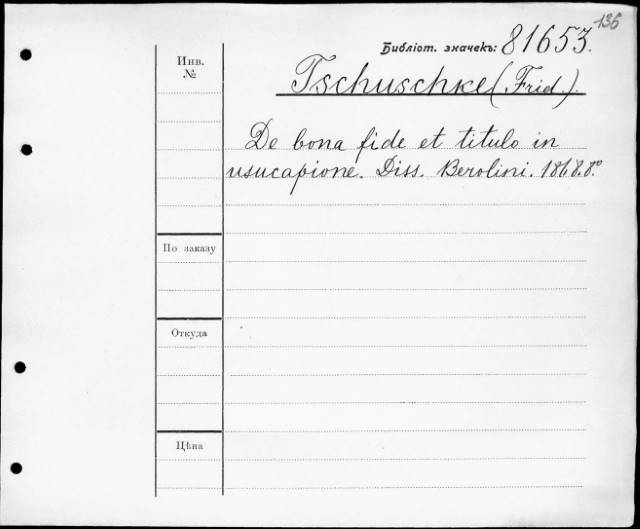 136
Библіот. значекъ: 81653.
Инв. №
Tschuschke (Frid.).
De bona fide et titulo in
usucapione. Diss. Berolini. 1868. 8.º
По заказу
Откуда
Цѣна